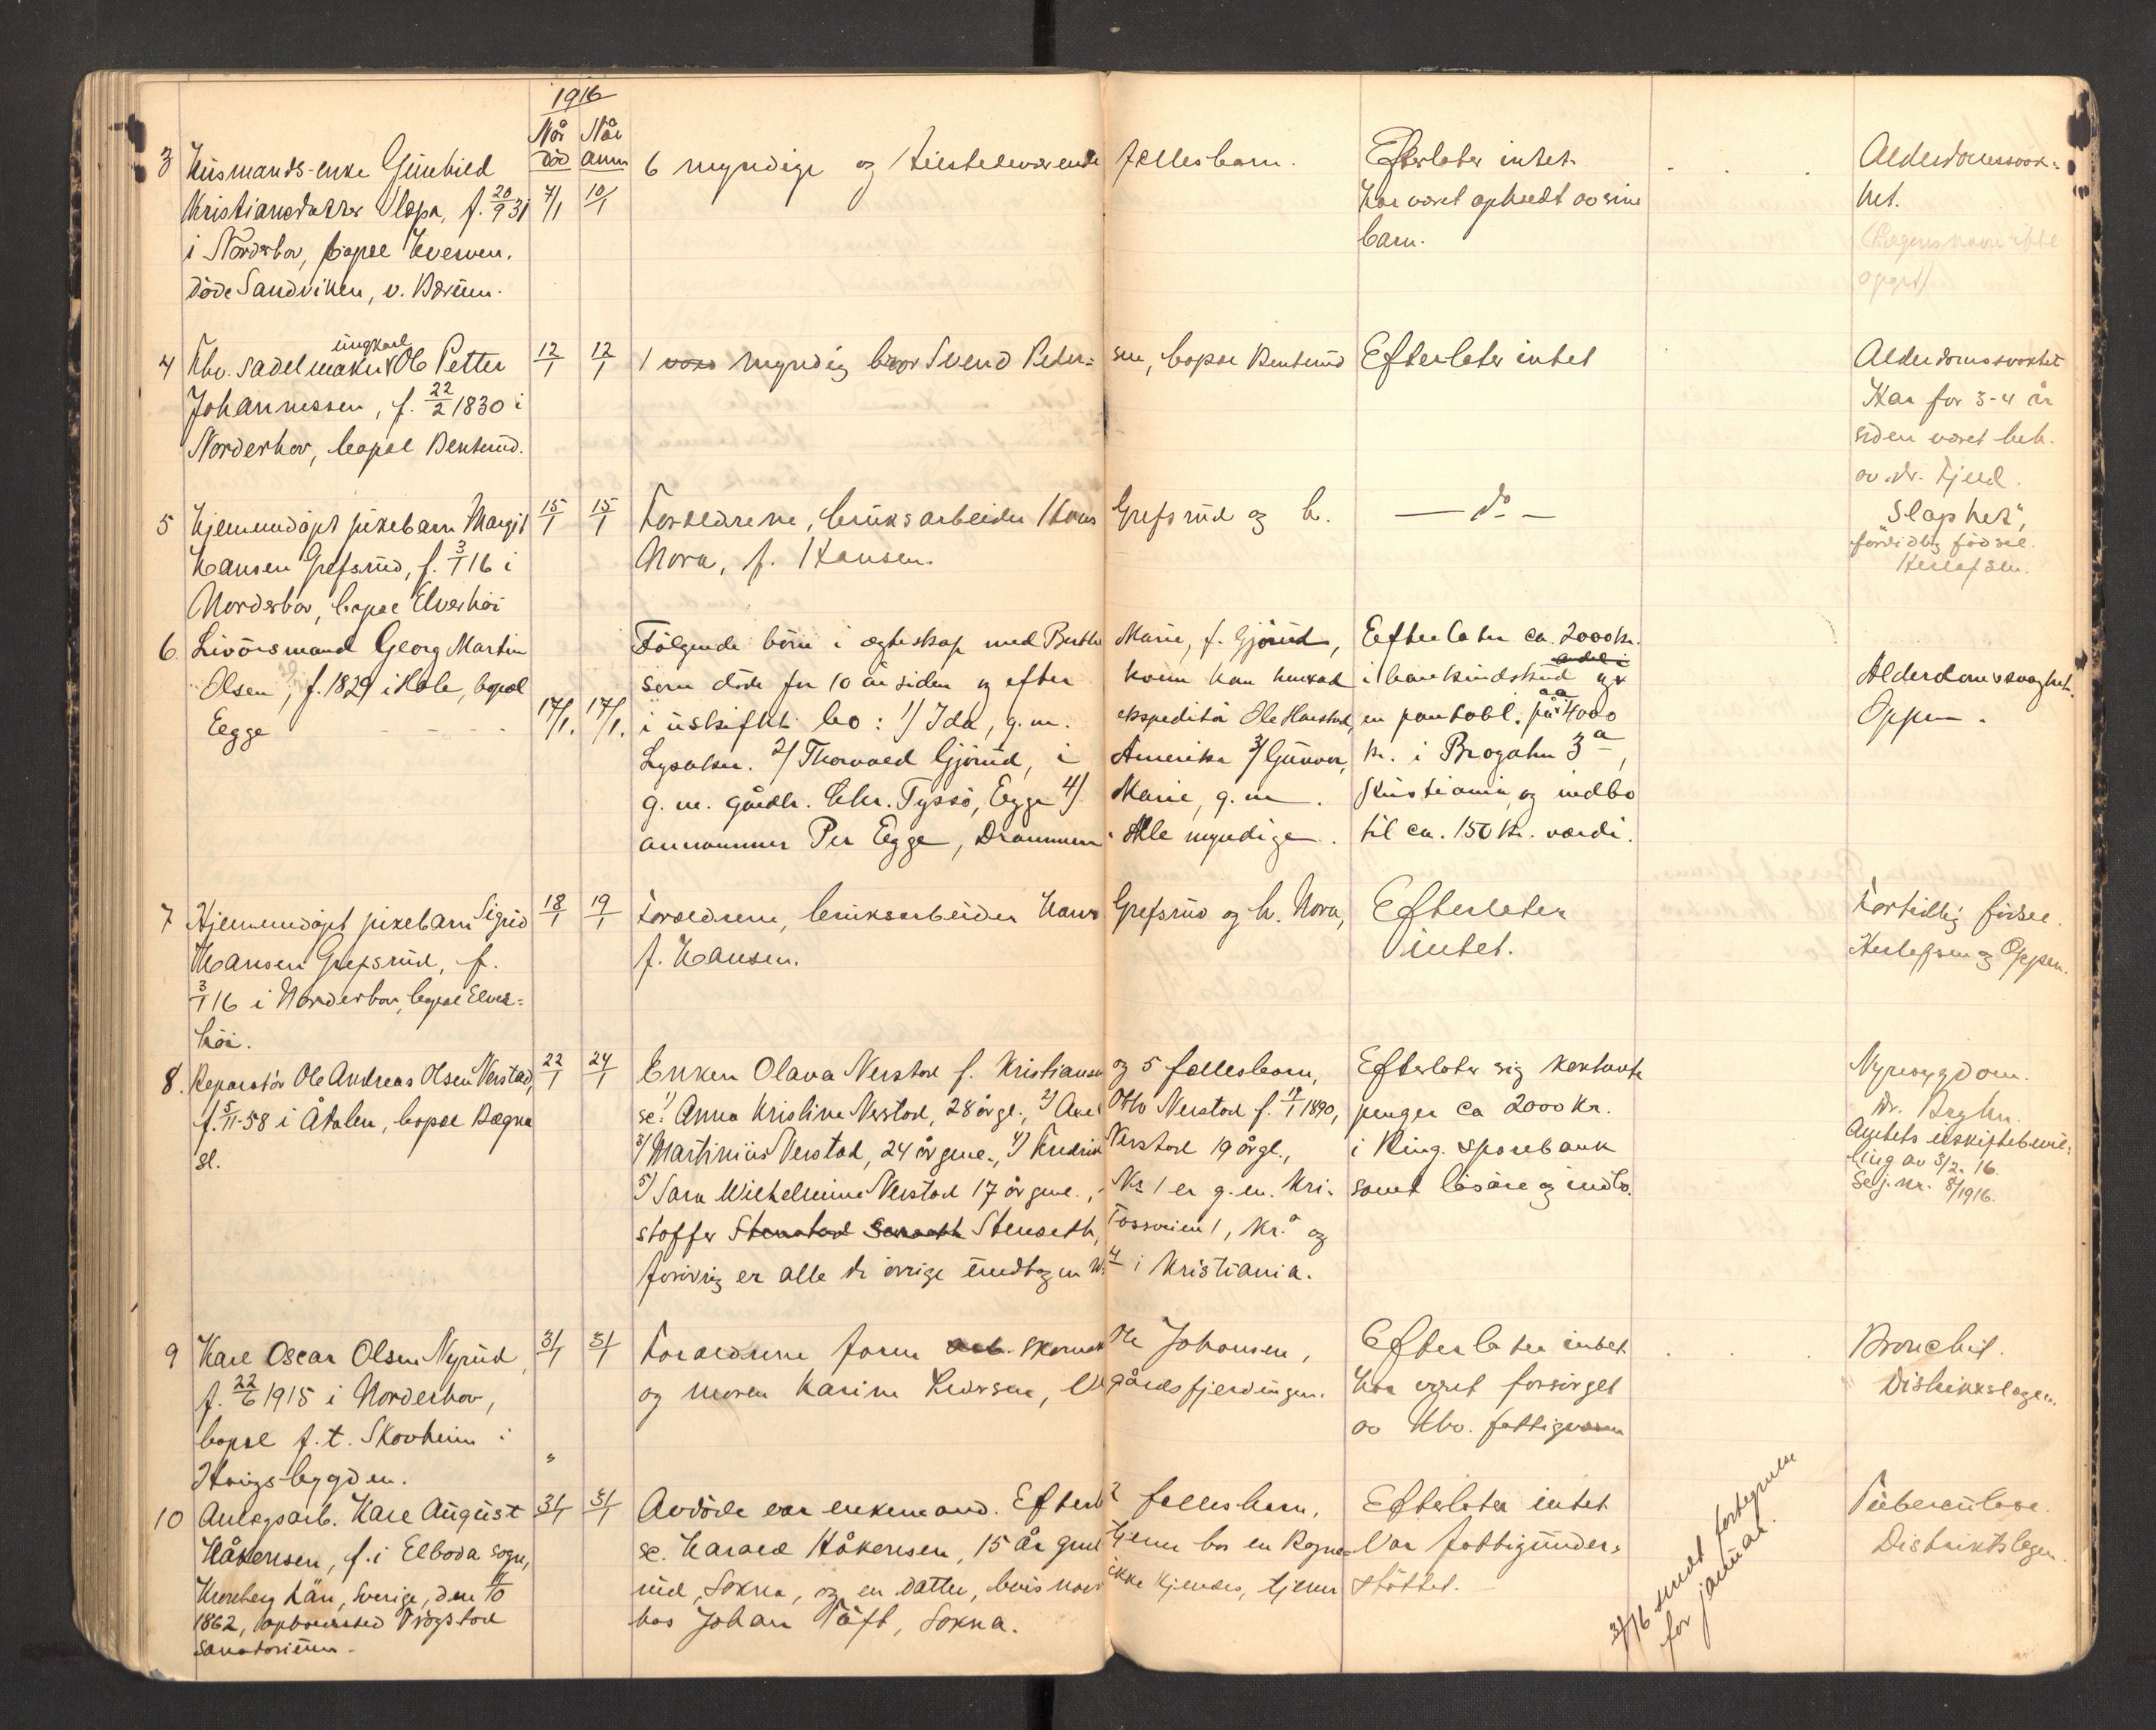 1916
Når død
Når anm
3
Husmands-enke Gunhild
Kristiansdatter f. 20/9 31
i Norderhov, bopæl Hverven.
døde Sandviken, v. Bærum.
7/1
10/1
6 myndige og tilstedeværende fællesbarn.
Efterlater intet
Har været opholdt av sine
barn.
Alderdomssvak-
het.
(Lægens navn ikke
opgit)
4
Fhv. sadelmaker ungkarl Ole Petter
Johannessen, f. 22/2 1830 i
Norderhov, bopæl Benterud.
12/1
12/1
1 myndig bror Svend Peter-
sen, bopæl Benterud
Efterlater intet
Alderdomssvakhet
Har for 3-4 år
siden været beh.
av dr. Fjeld.
5
Hjemmedøpt pikebarn Margit
Hansen Grefsrud, f. 3/1 16 i
Norderhov, bopæl Elverhøi
15/1
15/1
Forældrene, bruksarbeider Hans Grefsrud og h.
Nora, f. Hansen.
— do —
"Slaphet",
førtidlig fødsel.
Herlofsen.
6.
Livørsmand Georg Martin
Olsen, f. 1829 i Hole, bopæl
Egge
17/1.
17/1.
Følgende børn i egteskap med Berthe Marie, f. Gjørud,
som døde for 10 år siden og efter hvem han hensad
i uskiftet bo: 1) Ida, g.m. ekspeditør Ole Harstad,
Lysaker. 2) Thorvald Gjørud, i Amerika 3) Gunvor,
g.m. gårdbr. Chr. Tyssø, Egge 4) Marie, g.m.
Per Egge, Drammen. Alle myndige.
Efterlater ca. 2000 kr.
i bankindskud og
en pantobl. på 4000
kr. i Brogaten 3a,
Kristiania, og indbo
til ca. 150 kr. værdi.
Alderdomssvaghet.
Oppen.
7
Hjemmedøpt pikebarn Sigrid
Hansen Grefsrud, f.
3/1 16 i Norderhov, bopæl Elver-
høi.
18/1
19/1
Forældrene, bruksarbeider Hans Grefsrud og h. Nora,
f. Hansen.
Efterlater
intet.
Førtidlig fødsel.
Herlofsen og Oppen.
8.
Reparatør Ole Andreas Olsen Nerstad,
f. 5/11-58 i Ådalen, bopæl Bægna
sl.
22/1
24/1
Enken Olava Nerstad f. Kristiansen og 5 fællesbarn,
se: 1) Anna Kristine Nerstad, 28 år gl., 2) Axel Otto Nerstad f. 19/1 1890,
3) Martinius Nerstad, 24 år gml., 4) Fredrik Nerstad 19 år gl.,
5) Sara Wilhelmine Nerstad 17 år gml., Nr 1 er g.m. Kri-
stoffer Stenstad Stenseth, Fossveien 1, Kr.a og
forøvrig er alle de øvrige undtagen Nr. 4 i Kristiania.
Efterlater sig kontante
penger ca 2000 kr.
i Ring. sparebank
samt løsøre og indbo.
Nyresygdom.
Dr. Bryhn.
Amtets uskiftebevil-
ling av 3/2. 16.
Se j.nr. 8/1916.
9
Karl Oscar Olsen Nyrud,
f. 22/6 1915 i Norderhov,
bopæl f.t. Skovheim i
Haugsbygden.
31/1
31/1
Forældrene faren arb. skomak Ole Johansen,
og moren Karine Larsen,
Efterlater intet.
Har været forsørget
av Nho. fattigvæsen
Bronchit.
Distriktslægen.
10
Anlegsarb. Karl August
Håkensen, f. i Elboda sogn,
Kronberg Län, Sverige, den
1862, opholdssted Vrøgstad
Sanatorium.
31/1
31/1
Avdøde var enkemand. Efterl 2 fællesbarn,
se. Harald Håkensen, 15 år gml tjener hos en Rogne-
rud, Sokna, og en datter, hvis navn ikke kjendes, tjener
hos Johan Tåft, Sokna.
Efterlater intet
Var fattigunder-
støttet.
31/1 16 sendt fortegnelse
for januar.
Tuberculose.
Distriktslægen.